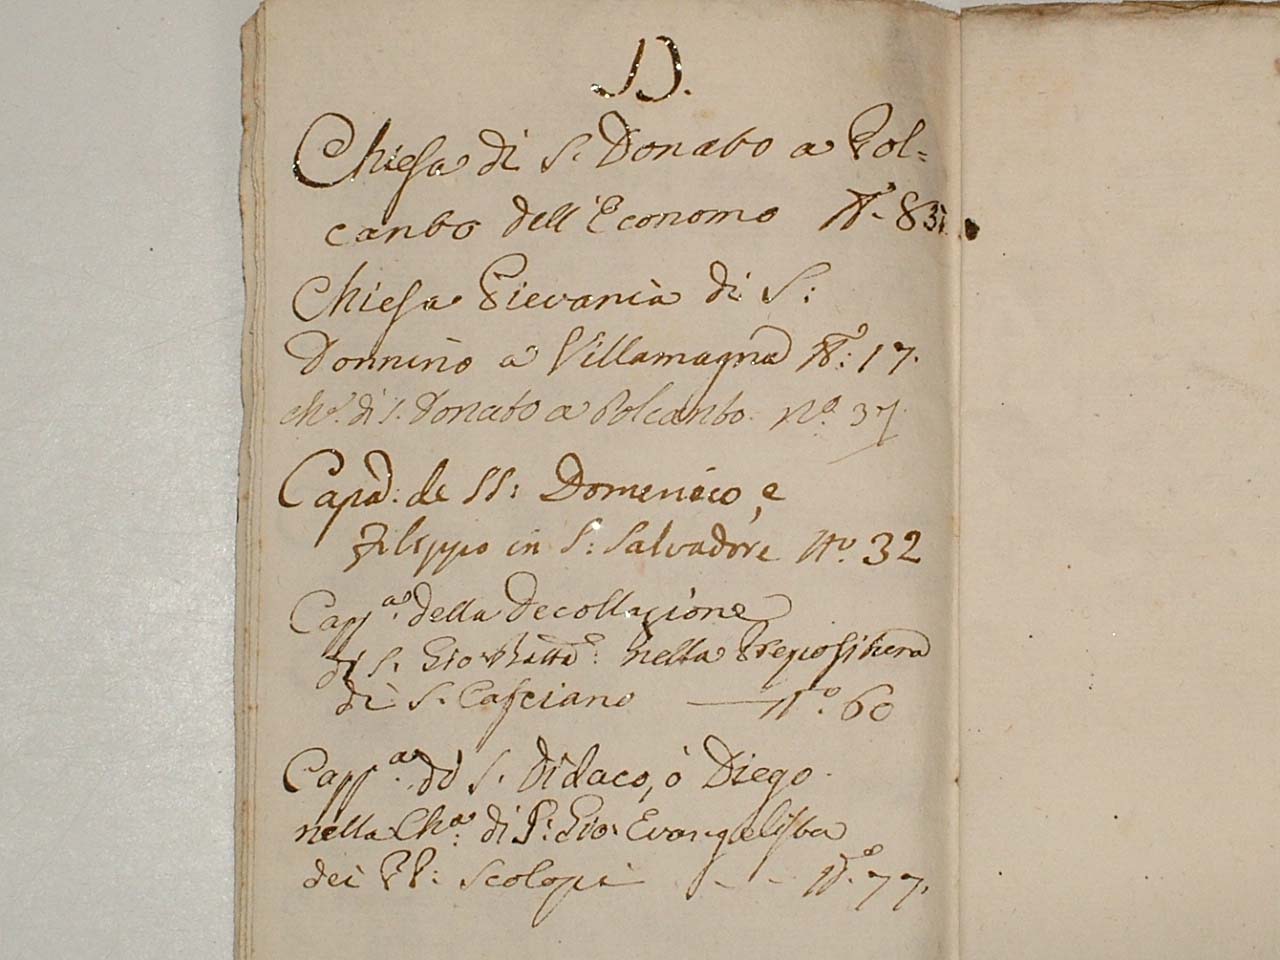 D.
Chiesa di S. Donato a Pol=
canto dell'Economo N.° 83
Chiesa Pievania di S:
Donnino a Villamagna N°: 17.
Ch.ª di S. Donato a Polcanto. Nº. 37
Capp.ª: de SS: Domenico, e
Filippo in S: Salvadore Nº. 32
Capp.ª della Decollazione
di S. Gio: Batta: nella Prepositura
di S. Casciano — Nº. 60
Capp.ª di S. Didaco, ò Diego
nella Ch.ª di S: Gio: Evangelista
dei PP: Scolopi - - Nº. 77.